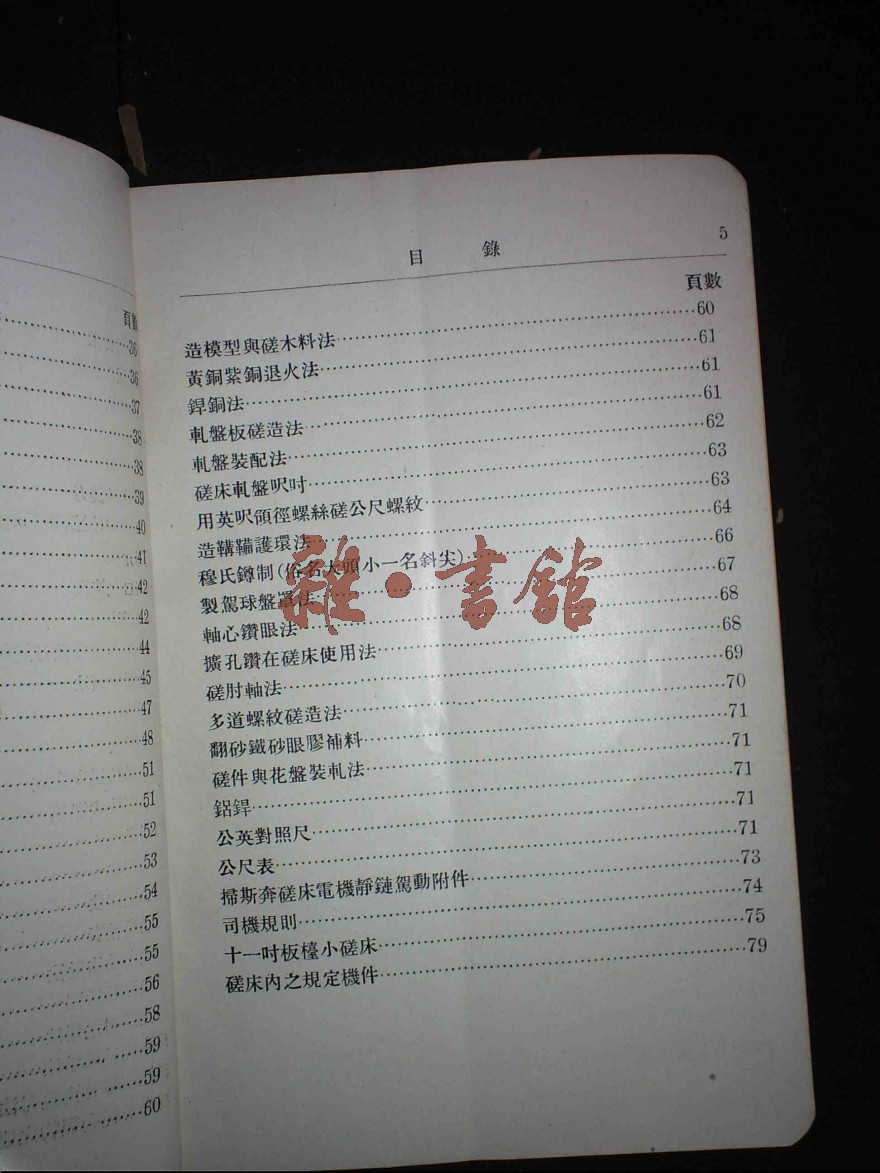 頁數
36
36
37
38
38
39
40
41
42
42
44
45
47
48
51
51
52
53
54
55
55
56
58
59
59
60
目 錄 5
頁數
造模型與磋木料法……60
黃銅紫銅退火法……61
銲銅法……61
軋盤板磋造法……61
軋盤裝配法……62
磋床軋盤呎吋……63
用英呎領徑螺絲磋公尺螺紋……63
造鞲鞴護環法……64
穆氏鐏制(俗名大頭小一名斜尖)……66
製駕球盤罩法……67
軸心鑽眼法……68
擴孔鑽在磋床使用法……68
磋肘軸法……69
多道螺紋磋造法……70
翻砂鐵砂眼膠補料……71
磋件與花盤裝軋法……71
鋁銲……71
公英對照尺……71
公尺表……71
掃斯奔磋床電機靜鏈駕動附件……73
司機規則……74
十一吋板檯小磋床……75
磋床內之規定機件……79
雜·書館